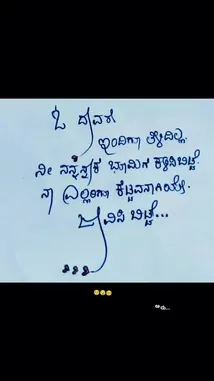 ಓ ದೇವರೇ
ಇಂದಿಗೂ ತಿಳಿದಿಲ್ಲ
ನೀ ನನ್ನನ್ಯಾಕೆ ಭೂಮಿಗೆ ಕಳಿಸಿಬಿಟ್ಟೆ
ನಾ ಎಲ್ಲರಿಗೂ ಕೆಟ್ಟವನಾಗಿಯೇ
ಜೀವಿಸಿ ಬಿಟ್ಟೆ...